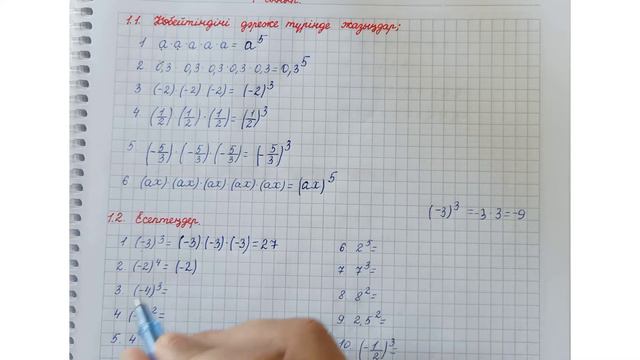 1.1. Көбейтіндіні дәреже түрінде жазыңдар;
1 a·a·a·a·a = a⁵
2 0,3 · 0,3 · 0,3 · 0,3 · 0,3 = 0,3⁵
3 (-2)·(-2)·(-2) = (-2)³
4 (1/2)·(1/2)·(1/2) = (1/2)³
5 (-5/3)·(-5/3)·(-5/3) = (-5/3)³
6 (ax)·(ax)·(ax)·(ax)·(ax) = (ax)⁵
(-3)³ = -3·3 = -9
1.2. Есептеңдер.
1 (-3)³ = (-3)·(-3)·(-3) = 27
2. (-2)⁴ = (-2)
3. (-4)³ =
4 (- ² =
5. 4
6 2⁵ =
7 7³ =
8 8² =
9. 2,5² =
10. (-1/2)³ =